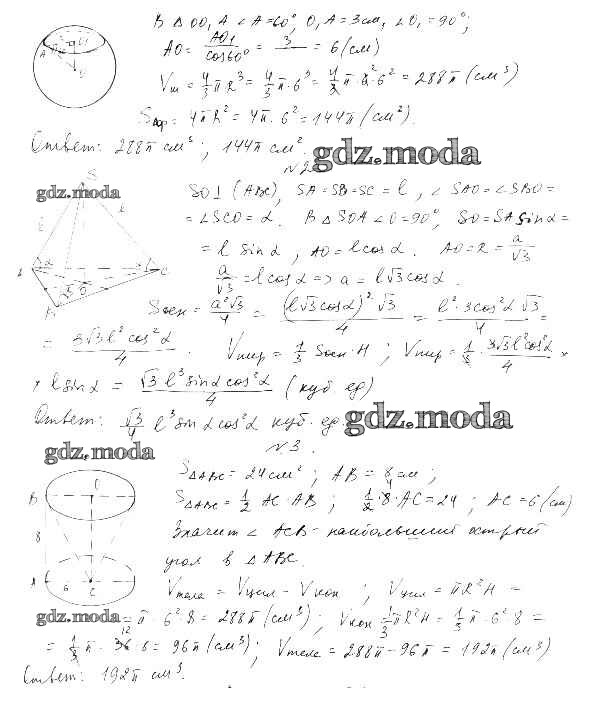 В △ OO₁A ∠A=60°, O₁A=3см, ∠O₁=90°;
AO= AO₁/cos60° = 3/ = 6(см)
Vш = 4/3 πR³ = 4/3 π·6³ = 4/3 π·6²·6² = 288π (см³)
Sпов = 4πR² = 4π·6² = 144π (см²).
Ответ: 288π см³; 144π см².
gdz.moda
№2
gdz.moda
S
SO⊥(ABC), SA=SB=SC=l, ∠SAO=∠SBO=
=∠SCO=α. В △SOA ∠O=90°, SO=SA sinα=
= l sinα, AO=l cosα. AO=R= a/√3
a/√3 = l cosα => a = l√3 cosα.
Sосн = a²√3/4 = (l√3 cosα)²·√3/4 = l²·3cos²α √3/4 =
= 3√3 l² cos²α/4. Vпир = 1/3 Sосн·H; Vпир = 1/3 · 3√3 l² cos²α/4 ×
× l sinα = √3 l³ sinα cos²α/4 (куб. ед)
Ответ: √3/4 l³ sinα cos²α куб. ед.
gdz.moda
№3.
gdz.moda
S△ABC = 24см²; AB = 8см;
S△ABC = 1/2 AC·AB; 1/2·8·AC=24; AC=6(см)
Значит ∠ACB= наибольший острый
угол в △ABC.
Vтела = Vцил - Vкон; Vцил = πR²H =
gdz.moda
= π·6²·8 = 288π(см³); Vкон = 1/3 πR²H = 1/3 π·6²·8 =
= 1/3 π·36·8 = 96π (см³); Vтела = 288π-96π = 192π (см³)
Ответ: 192π см³.